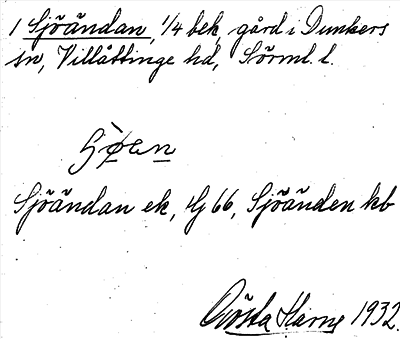 1 Sjöändan, 1/4 bek, gård i Dunkers
sn, Villåttinge hd, Sörml. l.
Sjöändan ek, Sjöänden kb
Gösta Karne 1932.